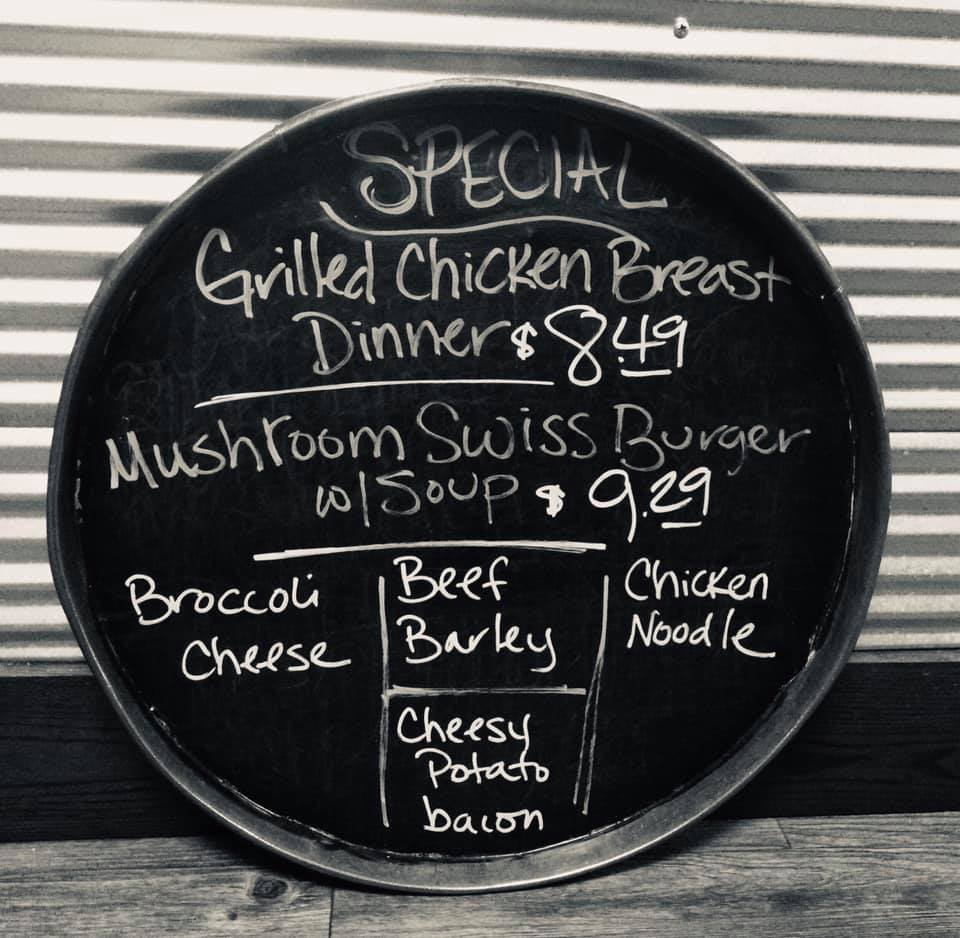 SPECIAL
Grilled Chicken Breast
Dinner $8.49
Mushroom Swiss Burger
w/Soup $ 9.29
Broccoli
Cheese
Beef
Barley
Cheesy
Potato
bacon
Chicken
Noodle